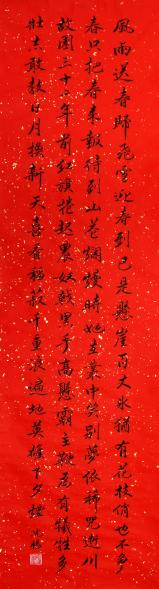 風雨送春歸飛雪迎春到已是懸崖百丈冰猶有花枝俏俏也不爭
春只把春來報待到山花爛熳時她在叢中笑別夢依稀咒逝川
故園三十二年前紅旗捲起農奴戟黑手高懸霸主鞭為有犧牲多
壯志敢教日月換新天喜看稻菽千重浪遍地英雄下夕煙